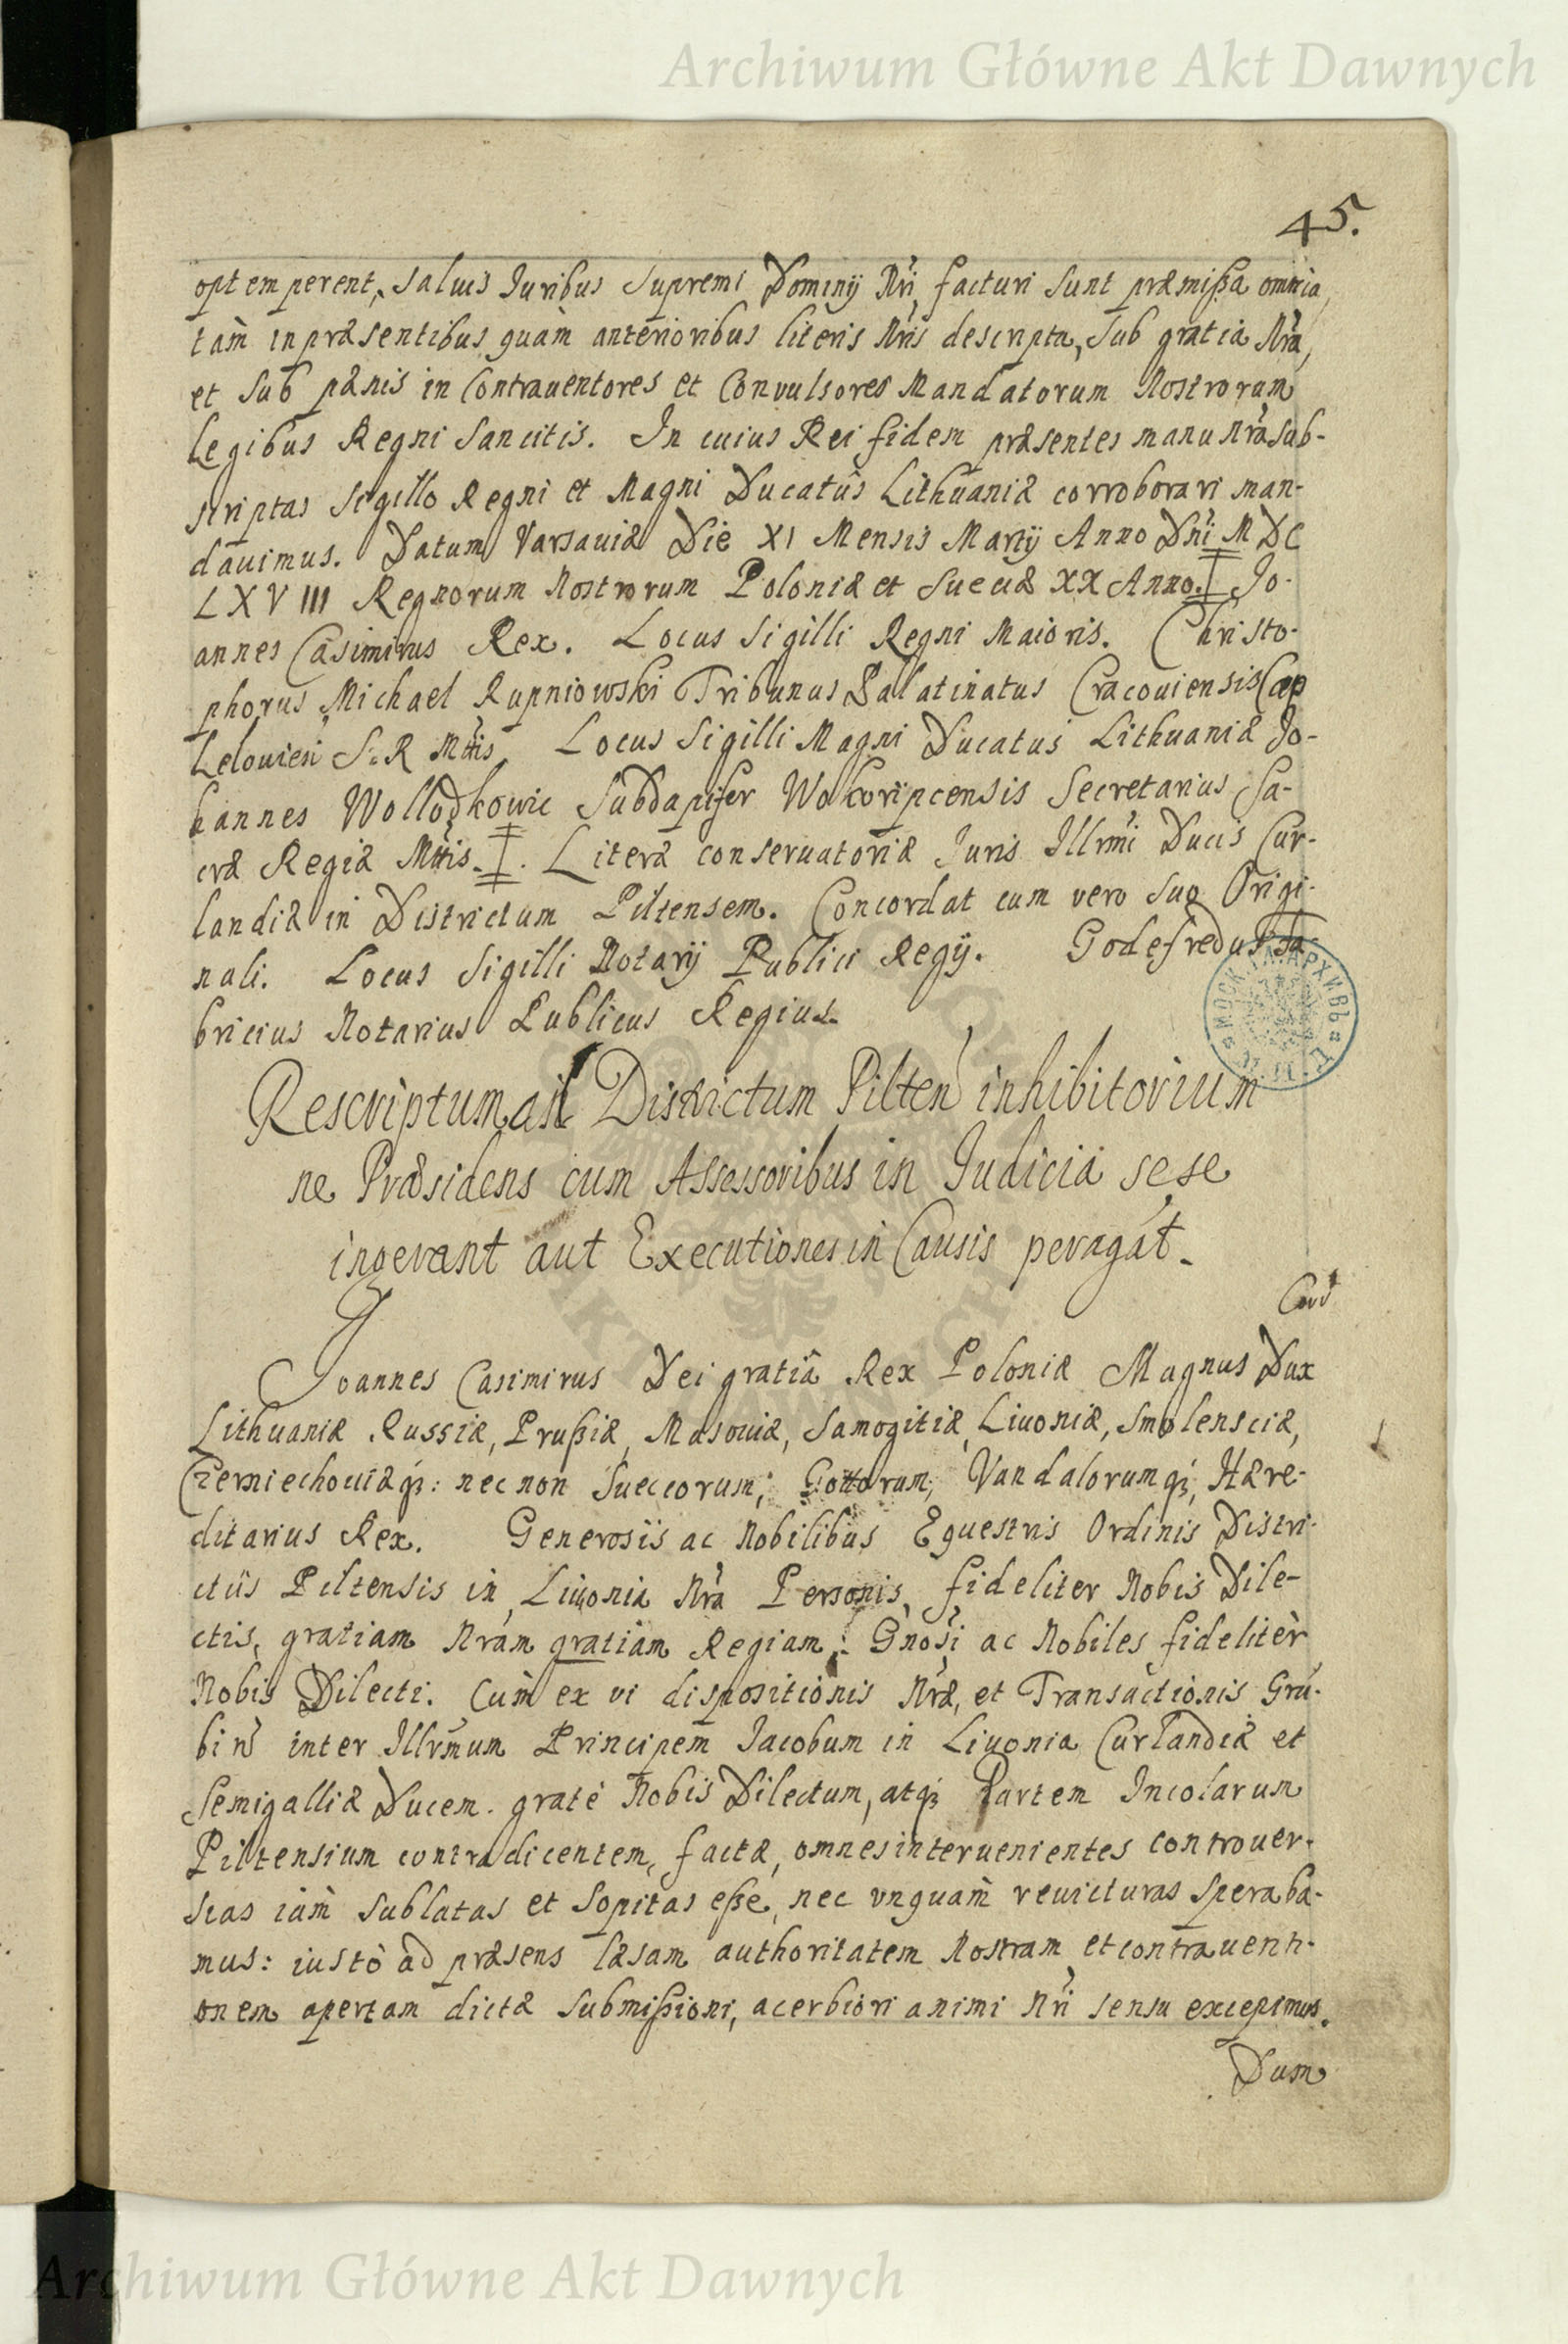 Archiwum Główne Akt Dawnych
45.
optemperent, salvis Iuribus Supremi Dominij Nri, facturi sunt præmißa omnia,
tam̀ in præsentibus quàm anterioribus literis Nris descripta, sub gratia Nra,
et sub pænis in Contrauentores et Convulsores Mandatorum Nostrorum
Legibus Regni Sancitis. In cuius Rei fidem præsentes manu Nra sub-
scriptas Sigillo Regni et Magni Ducatûs Lithuaniæ corroborari man-
dauimus. Datum Varsauiæ Die XI Mensis Martij Anno Dni M DC
LXVIII Regnorum Nostrorum Poloniæ et Sueciæ XX Anno. Jo-
annes Casimirus Rex. Locus Sigilli Regni Maioris. Christo-
phorus Michael Rupniowski Tribunus Pallatinatus Cracouiensis Cap
Lelouien S: R Mttis Locus Sigilli Magni Ducatus Lithuaniæ Jo-
hannes Wollodkowic Subdapifer Wolkoripcensis Secretarius Sa-
cræ Regiæ Mttis. Literæ conseruatoriæ Iuris Illrmi Ducis Cur-
landiæ in Districtum Piltensem. Concordat cum vero suo Origi-
nali. Locus Sigilli Notarij Publici Regij. Godefredus Fa-
bricius Notarius Publicus Regius.
МОСК. ГЛ. АРХИВЪ
Rescriptum ad Districtum Pilten inhibitorium
ne Præsidens cum Assessoribus in Judicia sese
ingerant aut Executiones in Causis peragāt.
Joannes Casimirus Dei gratiâ Rex Poloniæ Magnus Dux
Lithuaniæ Russiæ, Prußiæ, Masouiæ, Samogitiæ, Liuoniæ, Smolensciæ,
Czerniechouiæq3: nec non Sueccorum, Gottorum, Vandalorumq3, Hære-
ditarius Rex. Generosis ac Nobilibus Equestris Ordinis Distri-
ctûs Piltensis in Liuonia Nra Personis, fideliter Nobis Dile-
ctis, gratiam Nram gratiam Regiam. Gnosi ac Nobiles fidelitèr
Nobis Dilecti. Cum̀ ex vi dispositionis Nræ, et Transactionis Gru-
bin inter Illrmum Principem Jacobum in Liuonia Curlandiæ et
Semigalliæ Ducem. gratè Nobis Dilectum, atq3 Partem Incolarum
Piltensium contradicentem, factæ, omnes interuenientes controuer-
sias iam̀ sublatas et sopitas eße, nec vnquam̀ reuicturas speraba-
mus: iustò ad præsens læsam authoritatem Nostram et contrauenti-
onem apertam dictæ submißioni, acerbiori animi Nri sensu excepimus.
Dum
Archiwum Główne Akt Dawnych